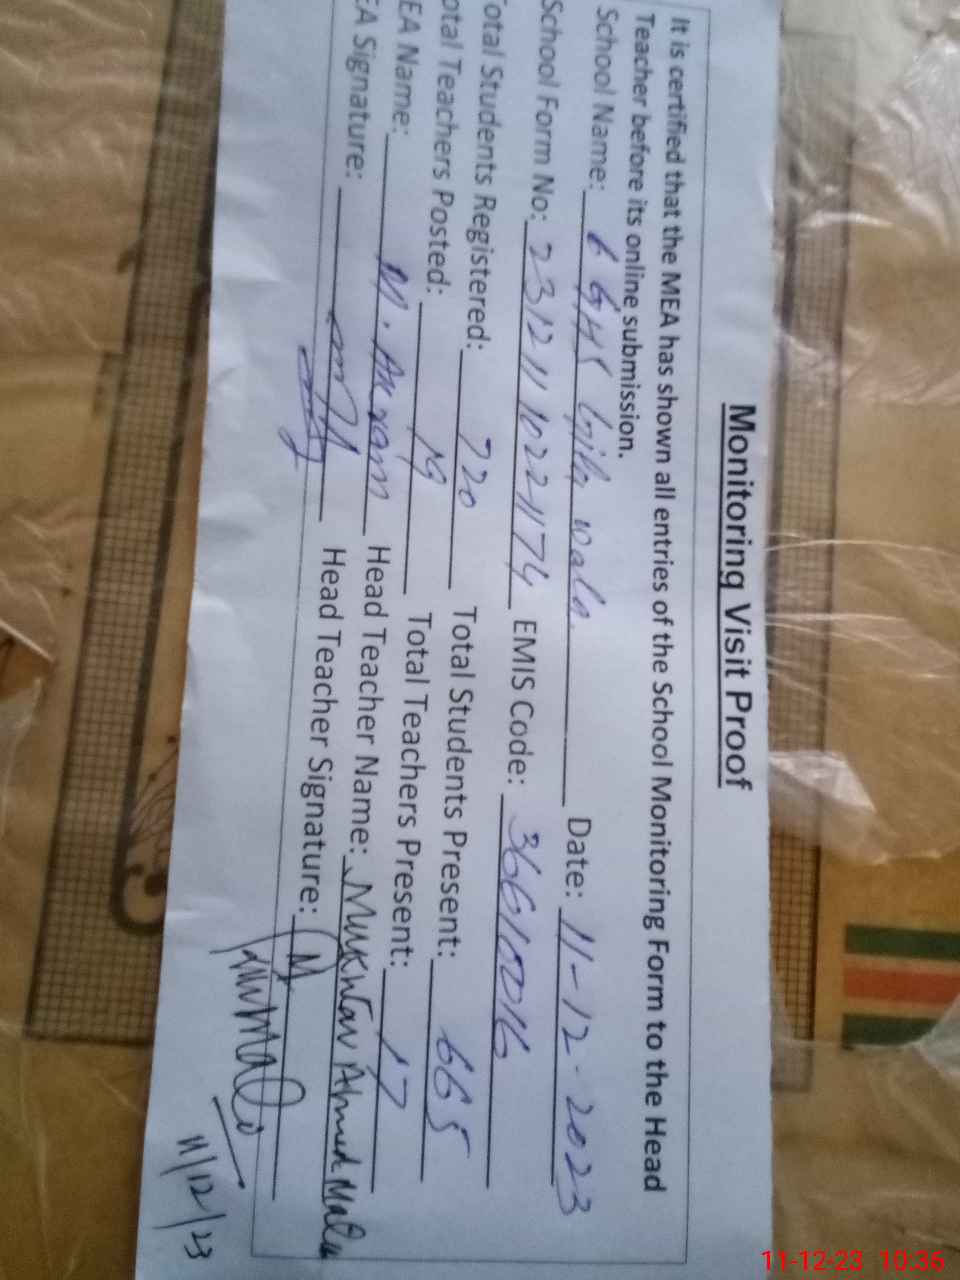 Monitoring Visit Proof
It is certified that the MEA has shown all entries of the School Monitoring Form to the Head
Teacher before its online submission.
School Name: GHS wala Date: 11-12-2023
School Form No: 23121110221174 EMIS Code: 36610016
otal Students Registered: 720 Total Students Present: 665
otal Teachers Posted: 19 Total Teachers Present: 17
EA Name: M. Akram Head Teacher Name: Mukhtar Ahmed Malik
EA Signature: Head Teacher Signature:
11/12/23
11-12-23 10:36